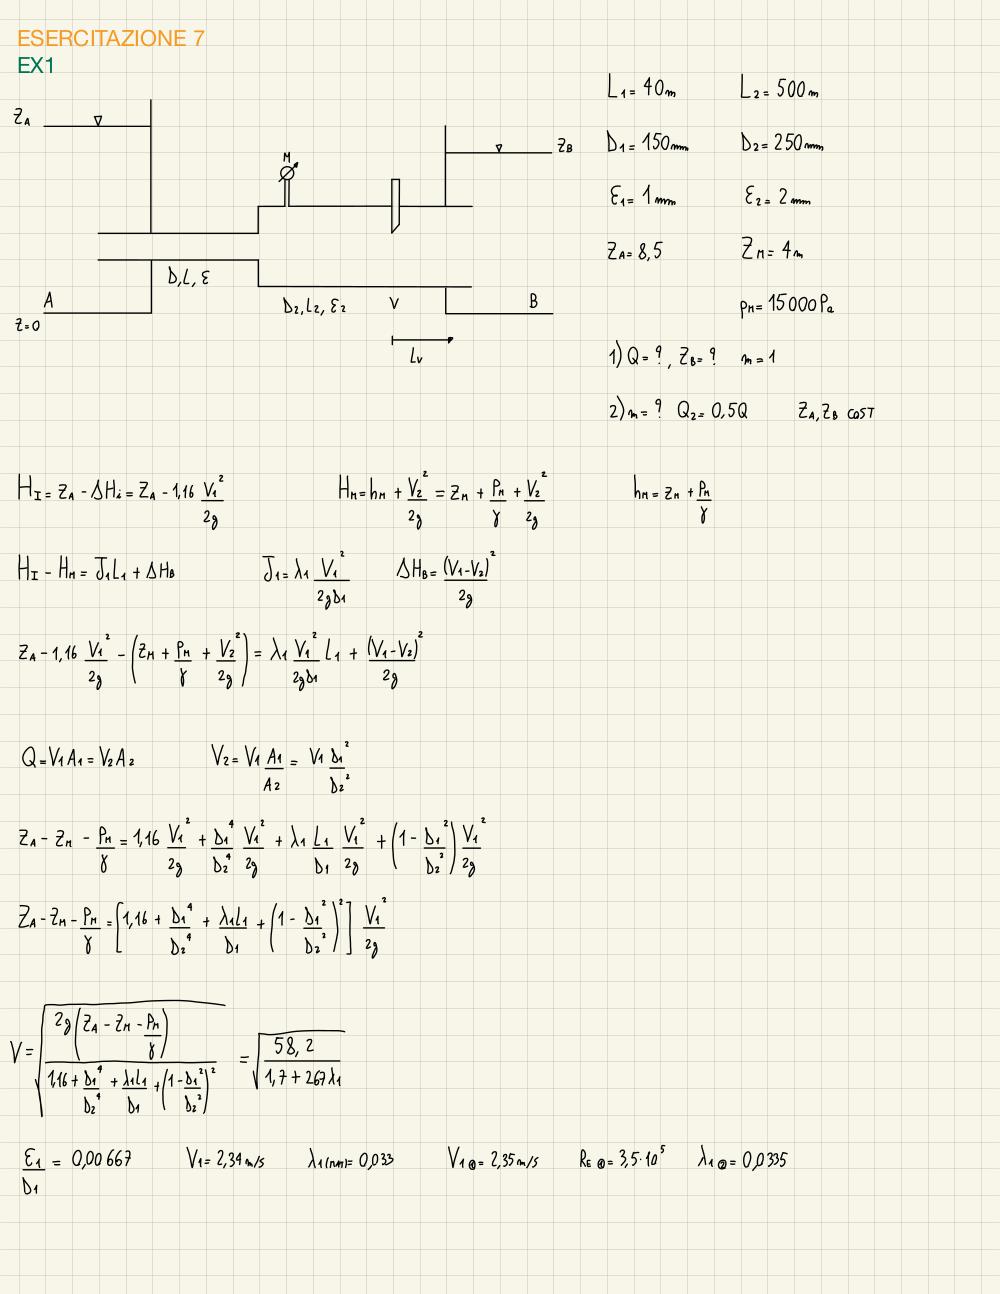 ESERCITAZIONE 7
EX1
Z_A
M
Z_B
D, L, ε
A
D₂, L₂, ε₂
V
B
Z=0
L_V
L₁= 40m L₂= 500m
D₁= 150mm D₂= 250mm
ε₁= 1mm ε₂= 2mm
Z_A= 8,5 Z_M= 4m
p_M= 15000 Pa
1) Q= ?, Z_B= ? m=1
2) m= ? Q₂= 0,5Q Z_A, Z_B COST
H_I= Z_A - ΔH_i= Z_A - 1,16 V₁²/2g H_M= h_M + V₂²/2g = Z_M + P_M/γ + V₂²/2g h_M= Z_M + P_M/γ
H_I - H_M= J₁L₁ + ΔH_B J₁= λ₁ V₁²/2gD₁ ΔH_B= (V₁-V₂)²/2g
Z_A - 1,16 V₁²/2g - (Z_M + P_M/γ + V₂²/2g) = λ₁ V₁²/2gD₁ L₁ + (V₁-V₂)²/2g
Q=V₁A₁ = V₂A₂ V₂= V₁ A₁/A₂ = V₁ D₁²/D₂²
Z_A - Z_M - P_M/γ = 1,16 V₁²/2g + D₁⁴/D₂⁴ V₁²/2g + λ₁ L₁/D₁ V₁²/2g + (1 - D₁²/D₂²) V₁²/2g
Z_A - Z_M - P_M/γ = [1,16 + D₁⁴/D₂⁴ + λ₁L₁/D₁ + (1 - D₁²/D₂²)²] V₁²/2g
V= √(2g(Z_A - Z_M - P_M/γ) / (1,16 + D₁⁴/D₂⁴ + λ₁L₁/D₁ + (1-D₁²/D₂²)²)) = √(58,2 / (1,7 + 267λ₁))
ε₁/D₁ = 0,00667 V₁= 2,34 m/s λ₁= 0,033 V₁= 2,35 m/s R_E= 3,5·10⁵ λ₁②= 0,0335